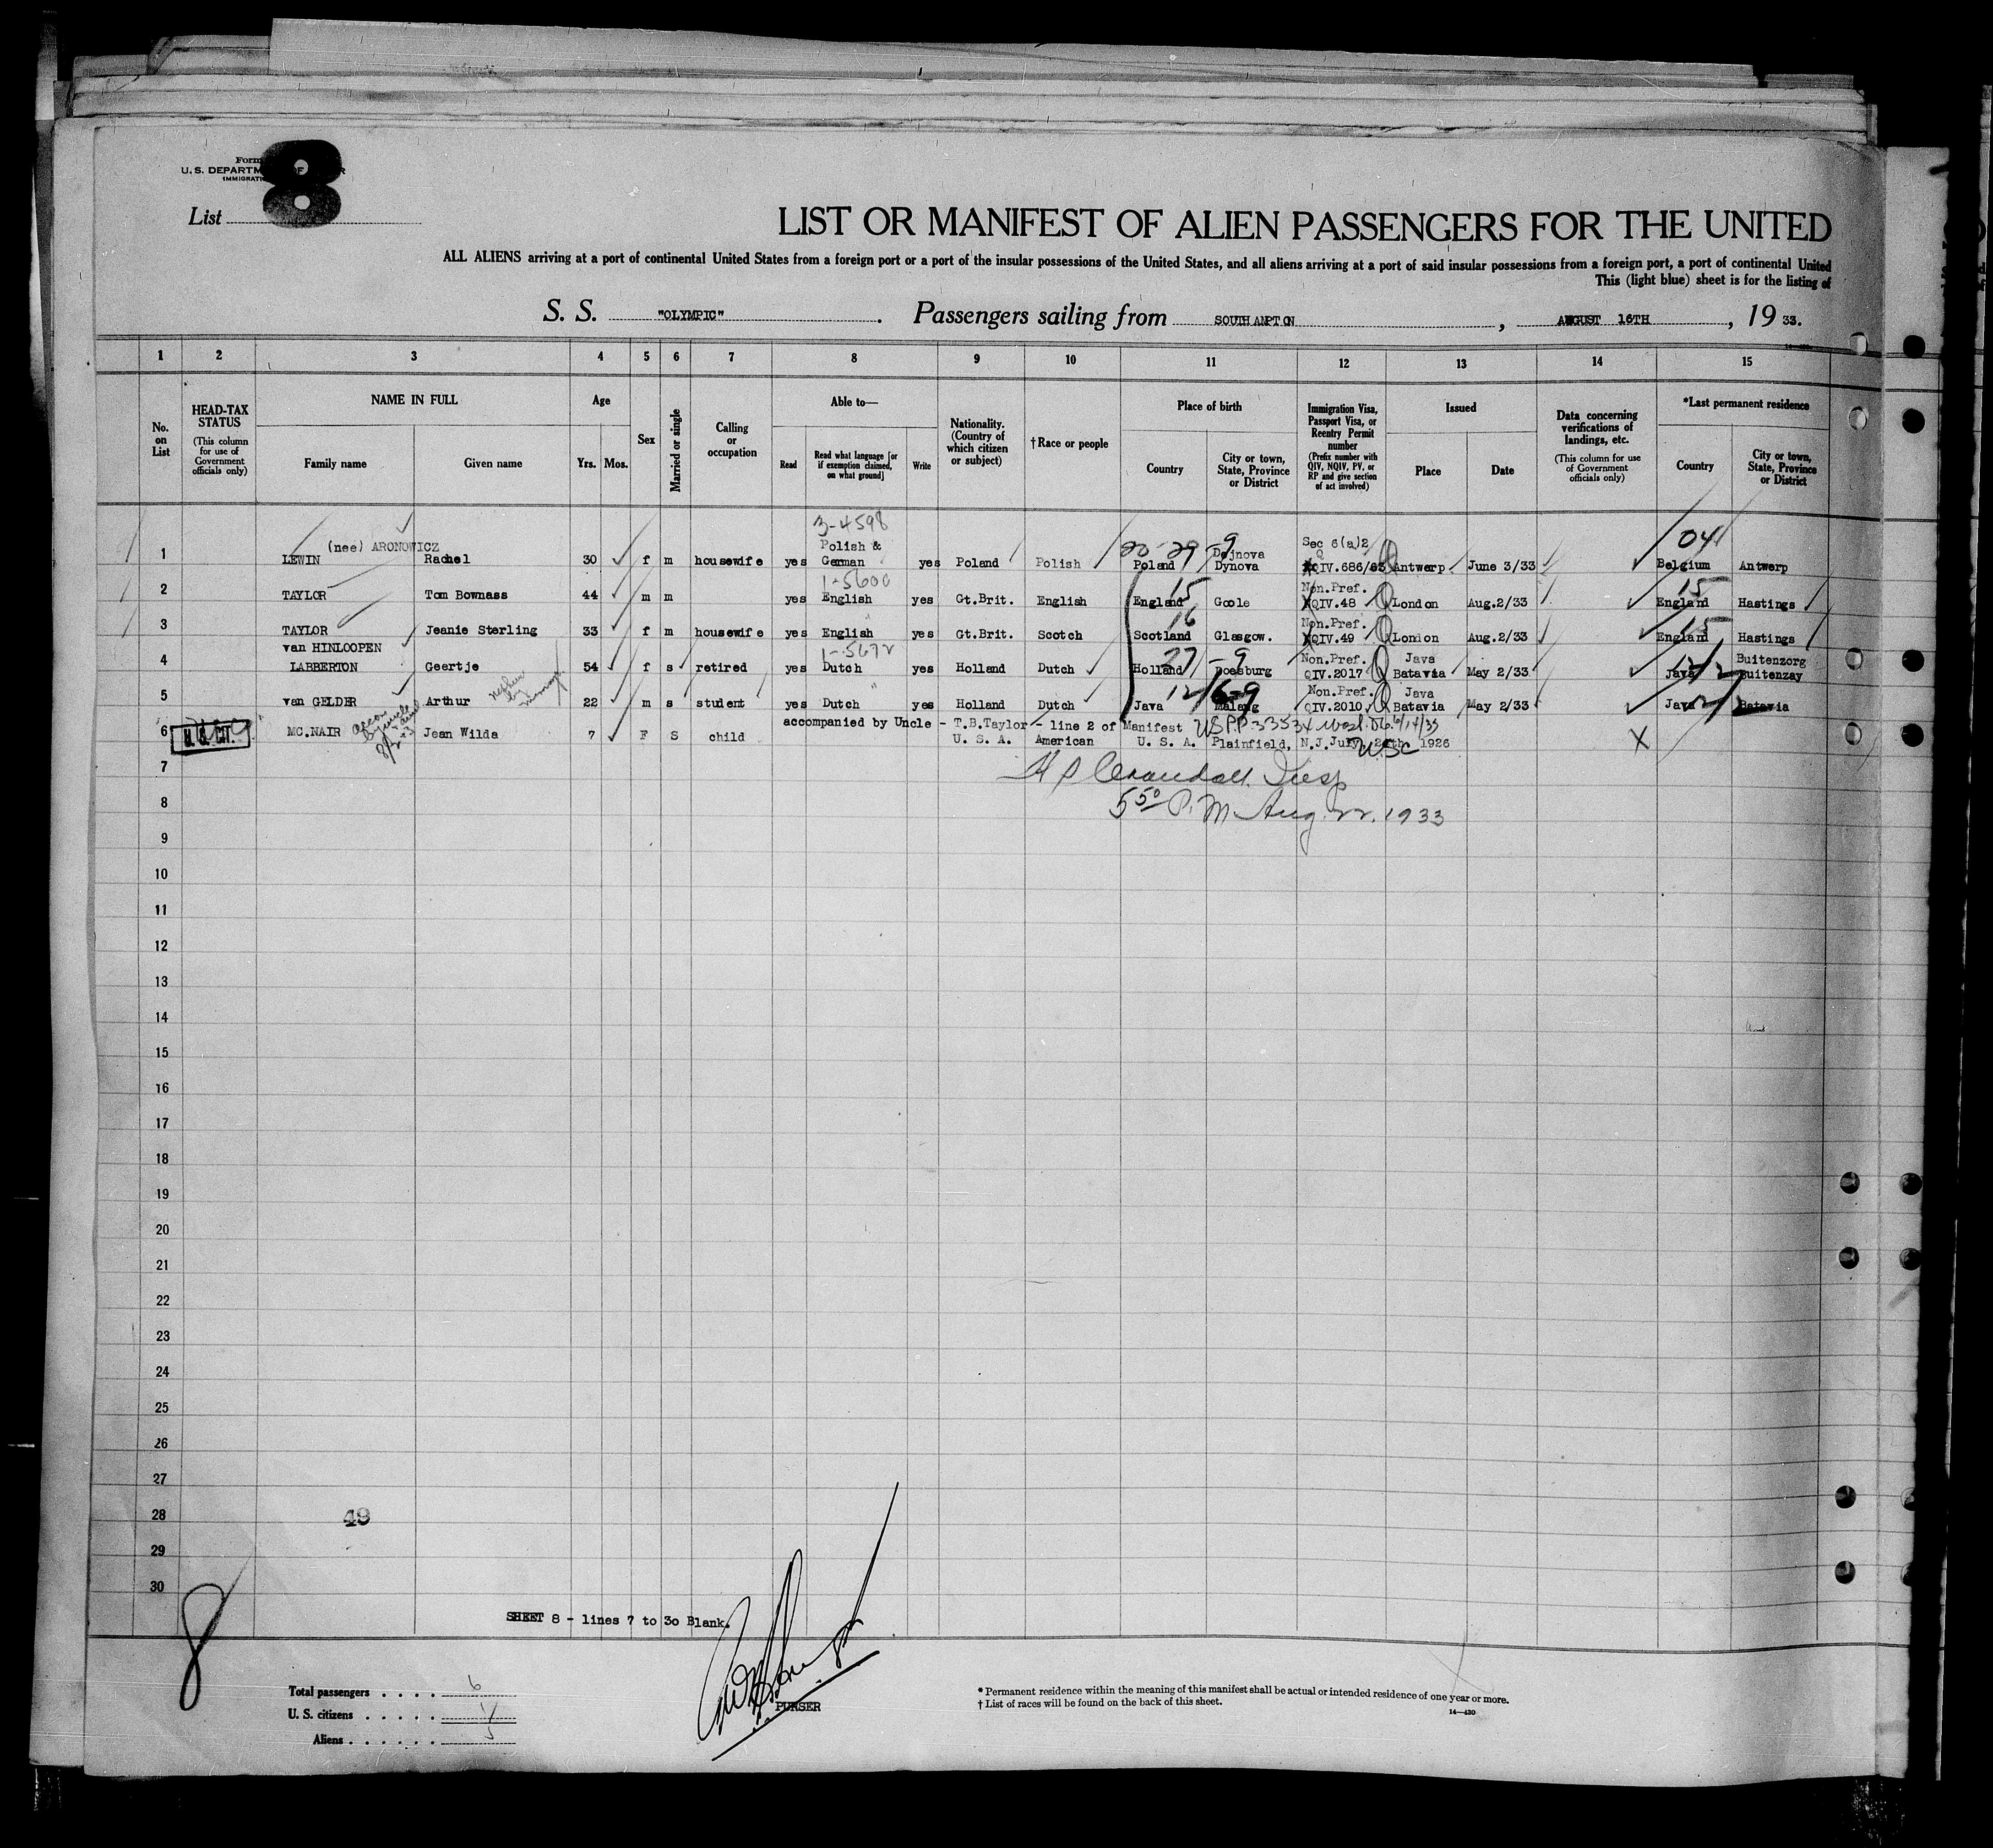 Form
U. S. DEPARTM OF R
IMMIGRATI
8
List
LIST OR MANIFEST OF ALIEN PASSENGERS FOR THE UNITED
ALL ALIENS arriving at a port of continental United States from a foreign port or a port of the insular possessions of the United States, and all aliens arriving at a port of said insular possessions from a foreign port, a port of continental United
This (light blue) sheet is for the listing of
S. S. "OLYMPIC". Passengers sailing from SOUTHAMPTON, AUGUST 16TH, 19 33.
1 2 3 4 5 6 7 8 9 10 11 12 13 14 15
No. on List
HEAD-TAX STATUS (This column for use of Government officials only)
NAME IN FULL
Family name Given name
Age
Yrs. Mos.
Sex
Married or single
Calling or occupation
Able to—
Read
Read what language [or if exemption claimed, on what ground]
Write
Nationality. (Country of which citizen or subject)
† Race or people
Place of birth
Country
City or town, State, Province or District
Immigration Visa, Passport Visa, or Reentry Permit number (Prefix number with QIV, NQIV, PV, or RP and give section of act involved)
Issued
Place Date
Data concerning verifications of landings, etc. (This column for use of Government officials only)
*Last permanent residence
Country
City or town, State, Province or District
3-4598
(nee) ARONOWICZ Polish & 20-29-9 Dejnova Sec 6(a)2 04
1 LEWIN Rachel 30 f m housewife yes German yes Poland Polish Poland Dynova QIV.686/83 Antwerp June 3/33 Belgium Antwerp
1-5600 15 Non.Pref. 15
2 TAYLOR Tom Bownass 44 m m yes English yes Gt.Brit. English England Goole QIV.48 London Aug.2/33 England Hastings
16 Non.Pref. 15
3 TAYLOR Jeanie Sterling 33 f m housewife yes English yes Gt.Brit. Scotch Scotland Glasgow. QIV.49 London Aug.2/33 England Hastings
van HINLOOPEN 1-5672 27-9 Non.Pref. Java Buitenzorg
4 LABBERTON Geertje 54 f s retired yes Dutch yes Holland Dutch Holland Doesburg QIV.2017 Batavia May 2/33 Java Buitenzay
nephew by marriage Non.Pref. Java
5 van GELDER Arthur 22 m s student yes Dutch yes Holland Dutch Java Malang QIV.2010 Batavia May 2/33 Java Batavia
accompanied by Uncle - T.B.Taylor - line 2 of Manifest
6 U. S. CIT. MC.NAIR Jean Wilda 7 F S child U. S. A. American U. S. A. Plainfield, N.J. July 24th 1926 X
7
5 50 P. M Aug. 22. 1933
8
9
10
11
12
13
14
15
16
17
18
19
20
21
22
23
24
25
26
27
28 49
29
30
SHEET 8 - lines 7 to 30 Blank.
8
PURSER
Total passengers . . . . 6
U. S. citizens . . . . . 1
Aliens . . . . . . 5
* Permanent residence within the meaning of this manifest shall be actual or intended residence of one year or more.
† List of races will be found on the back of this sheet.
14—430